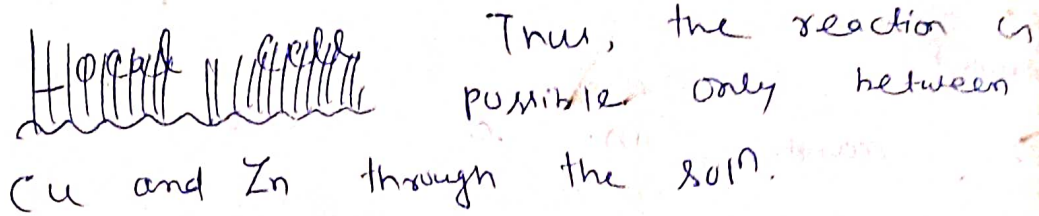 Thus, the reaction is
possible only between
Cu and Zn through the solⁿ.